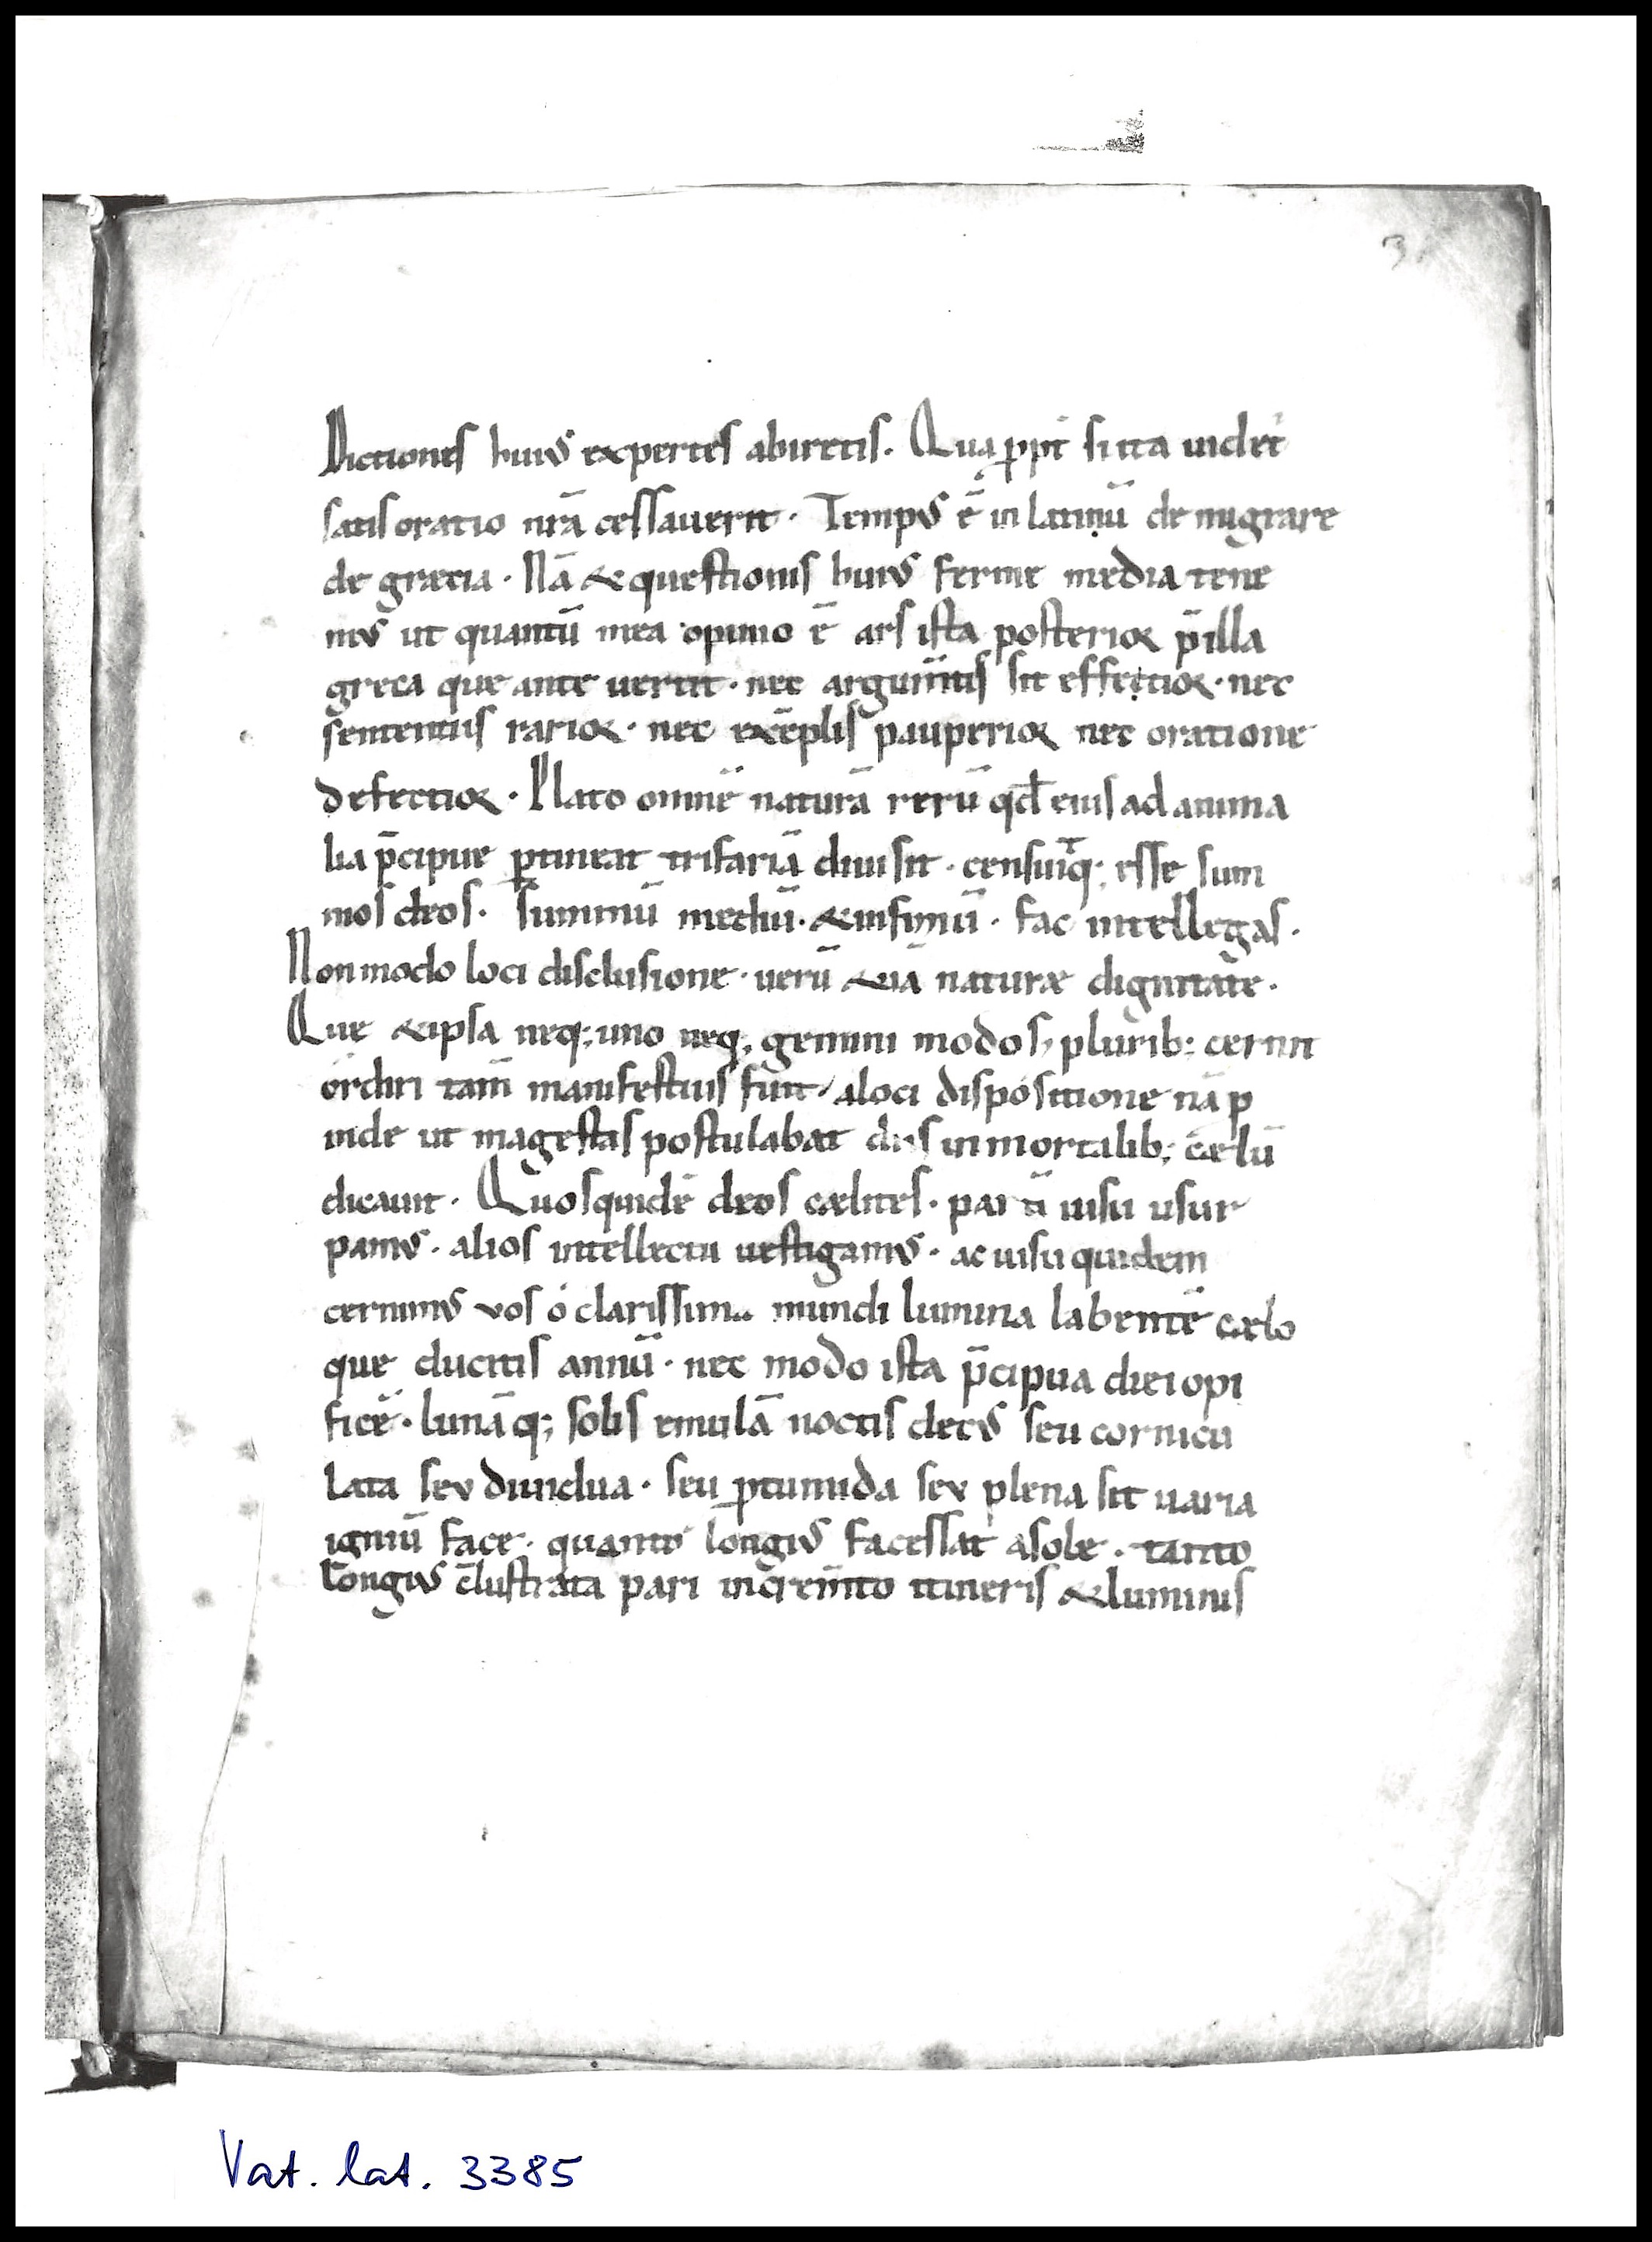 3
Dictiones huius expertes abiretis. Quapp̄t si ita videt᷑
satis oratio nrā cessaverit. Tempus ē in latinū demigrare
de grecia. Nā & questionis huius ferme media tene
mus ut quantū mea opinio ē ars ista posterior p̄ illa
greca que ante vertit. nec argum̄tis sit effectior. nec
sententiis rarior. nec exēplis pauperior nec oratione
defectior. Plato omnē naturā rerū qd̄ eius ad anima
lia p̄cipue ꝑtineat trifariā divisit. censuitq; esse sum
mos deos. Summū mediū. & infimū. fac intellegas.
Non modo loci disclusione. verū &iā naturæ dignitate.
Que & ipsa neq; uno neq; gemini modo s; plurib; cernit᷑
ordiri tam̄ manifestius fuit a loci dispositione nā p
inde ut magestas postulabat diis inmortalib; cælū
dicavit. Quos quidē deos cælites. partī visu usur
pamus. alios intellectu vestigamus. ac visu quidem
cernimus vos ó clarissima mundi lumina labentē cælo
que ducitis annū. nec modo ista p̄cipua diei opi
ficē. lunāq; solis emulā noctis decus seu cornicu
lata seu dividua. seu ꝓtumida seu plena sit varia
igniū face. quanto longius facessat a sole. tanto
longius c̄lustrata pari increm̄to itineris & luminis
Vat. lat. 3385